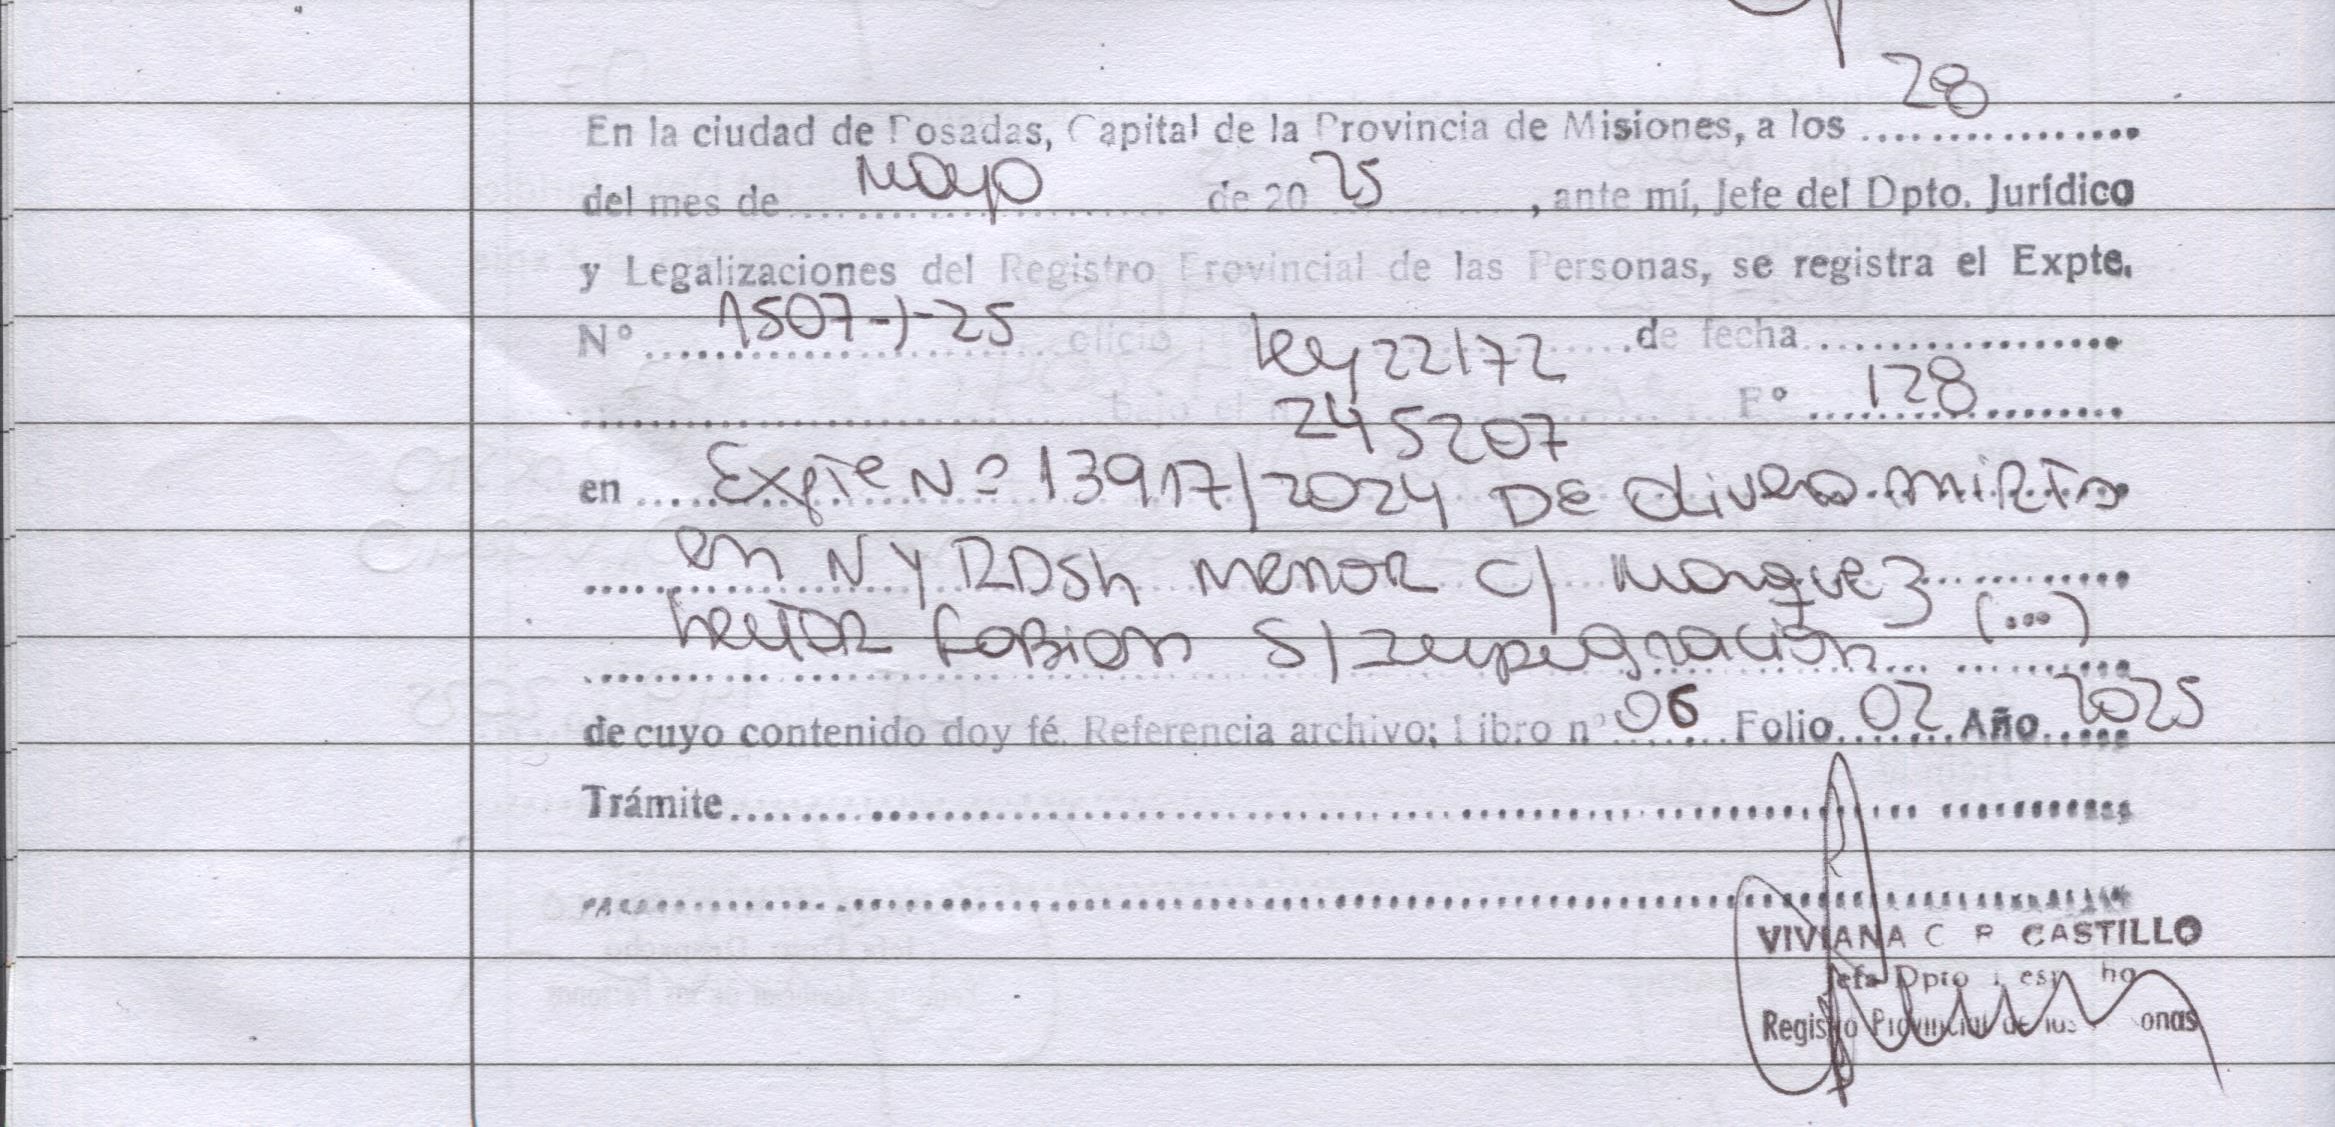 28
En la ciudad de Posadas, Capital de la Provincia de Misiones, a los ................
del mes de mayo de 20 25, ante mí, Jefe del Dpto. Jurídico
y Legalizaciones del Registro Provincial de las Personas, se registra el Expte.
N° 1507-J-25 oficio N° ley 22172 de fecha ................
bajo el n° 245207 F° 128
en Expte Nº 13917/2024 DE Olivera mirta
en N y RDSh menor c/ Marquez
hector Fabian S/ Impugnación (...)
de cuyo contenido doy fé. Referencia archivo: Libro n° 06 Folio 02 Año 2025
Trámite................
VIVIANA C R CASTILLO
Jefa Dpto
Registro Provincial de las onas